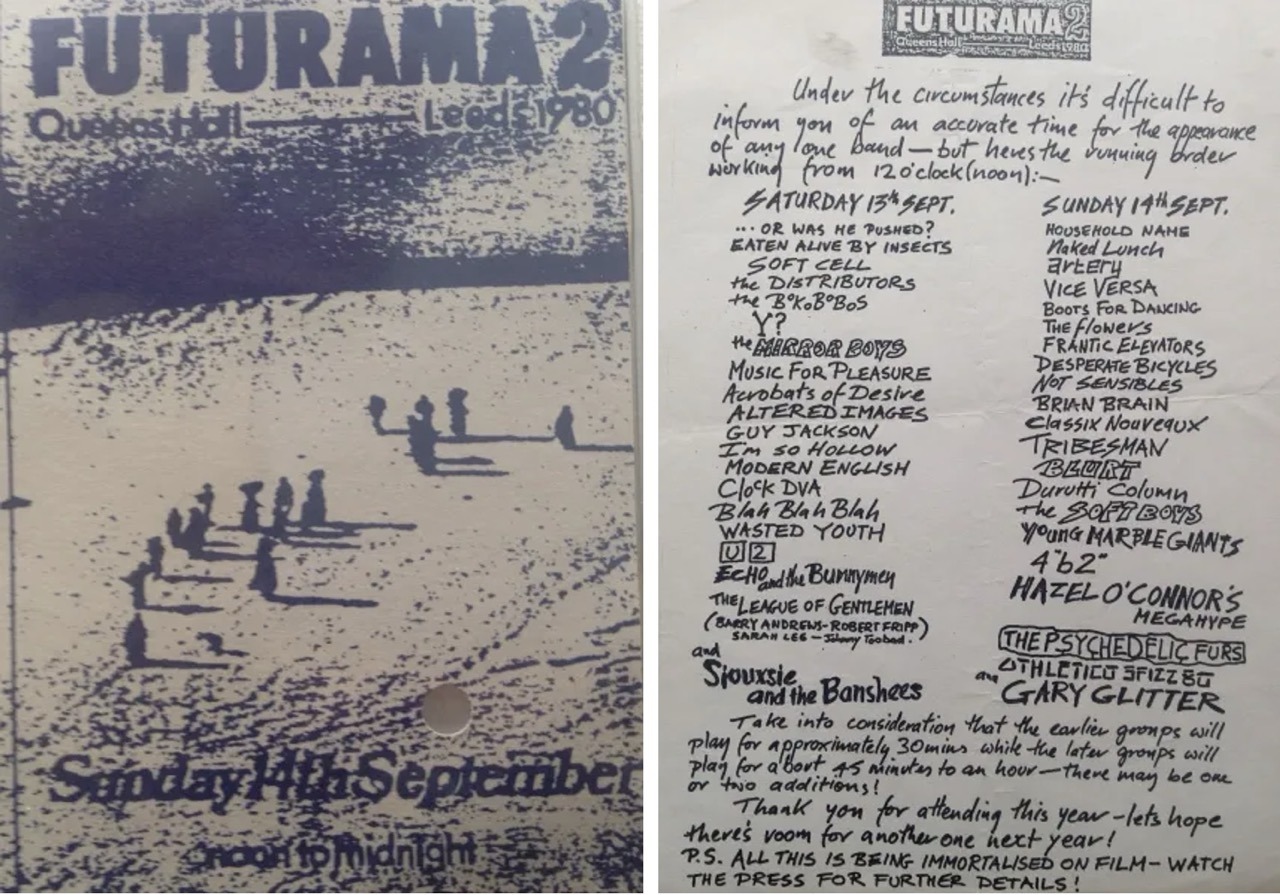 FUTURAMA 2
Queens Hall Leeds 1980
Sunday 14th September
noon to midnight
FUTURAMA 2
Queens Hall Leeds 1980
Under the circumstances it's difficult to
inform you of an accurate time for the appearance
of any one band — but heres the running order
working from 12 o'clock (noon):—
SATURDAY 13th SEPT.
... OR WAS HE PUSHED?
EATEN ALIVE BY INSECTS
SOFT CELL
the DISTRIBUTORS
the BoKoBoBoS
Y?
the MIRROR BOYS
MUSIC FOR PLEASURE
Acrobats of Desire
ALTERED IMAGES
GUY JACKSON
I'm so HOLLOW
MODERN ENGLISH
Clock DVA
Blah Blah Blah
WASTED YOUTH
U2
ECHO and the Bunnymen
THE LEAGUE OF GENTLEMEN
(BARRY ANDREWS - ROBERT FRIPP)
SARAH LEE — Johnny Toobad.
and
Siouxsie
and the Banshees
SUNDAY 14th SEPT.
HOUSEHOLD NAME
Naked Lunch
artery
VICE VERSA
BOOTS FOR DANCING
THE flowers
FRANTIC ELEVATORS
DESPERATE BICYCLES
NOT SENSIBLES
BRIAN BRAIN
Classix Nouveaux
TRIBESMAN
BLURT
Durutti Column
the SOFT BOYS
Young MARBLE GIANTS
4"b2"
HAZEL O'CONNOR'S
MEGAHYPE
THE PSYCHEDELIC FURS
ATHLETICO SPIZZ 80
and GARY GLITTER
Take into consideration that the earlier groups will
play for approximately 30 mins while the later groups will
play for about 45 minutes to an hour — there may be one
or two additions!
Thank you for attending this year - lets hope
there's room for another one next year!
P.S. ALL THIS IS BEING IMMORTALISED ON FILM - WATCH
THE PRESS FOR FURTHER DETAILS!